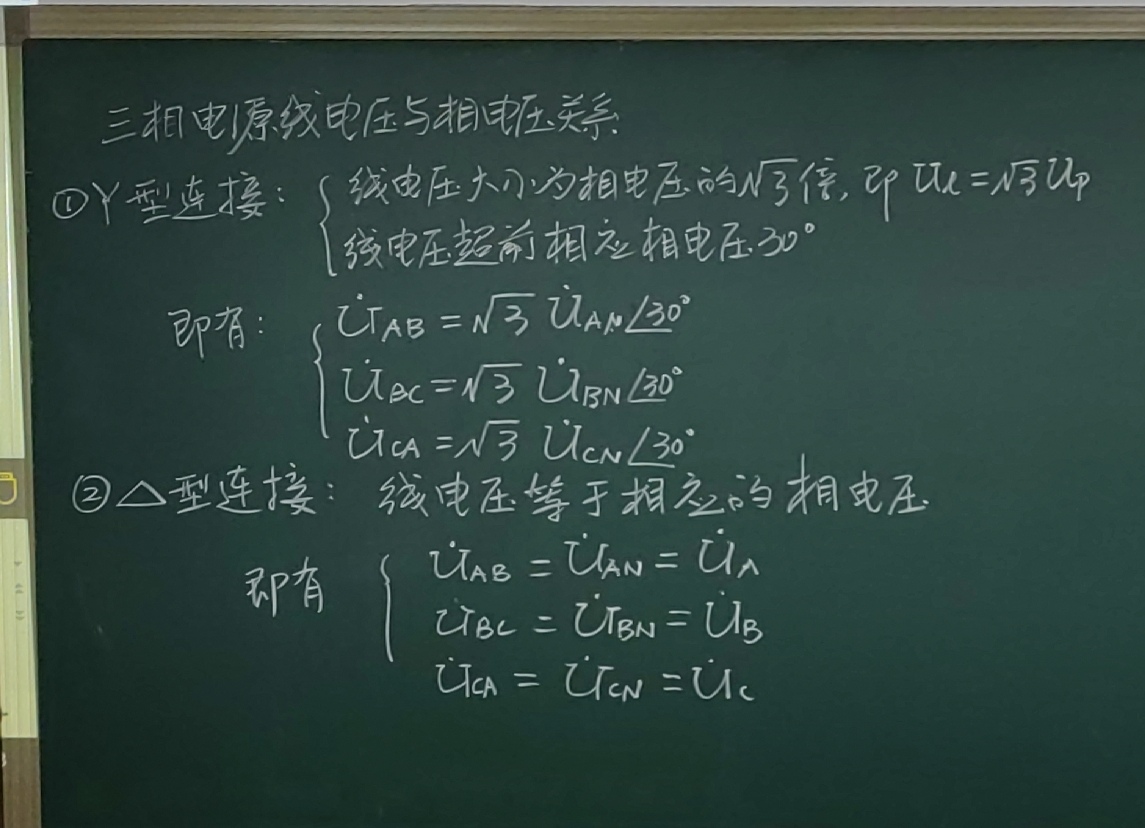 三相电源线电压与相电压关系
①Y型连接：{线电压大小为相电压的√3倍,即 Uₗ=√3Uₚ
线电压超前相应相电压30°
即有：{U̇AB=√3 U̇AN∠30°
U̇BC=√3 U̇BN∠30°
U̇CA=√3 U̇CN∠30°
②△型连接：线电压等于相应的相电压
即有{U̇AB=U̇AN=U̇A
U̇BC=U̇BN=U̇B
U̇CA=U̇CN=U̇C